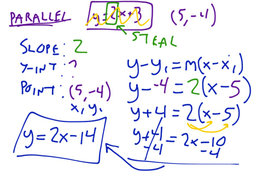 PARALLEL y=2x+3 (5,-4)
STEAL
SLOPE: 2
Y-INT: ?
POINT: (5,-4)
x₁ y₁
y-y₁=m(x-x₁)
y--4=2(x-5)
y+4=2(x-5)
y+4=2x-10
-4 -4
y=2x-14